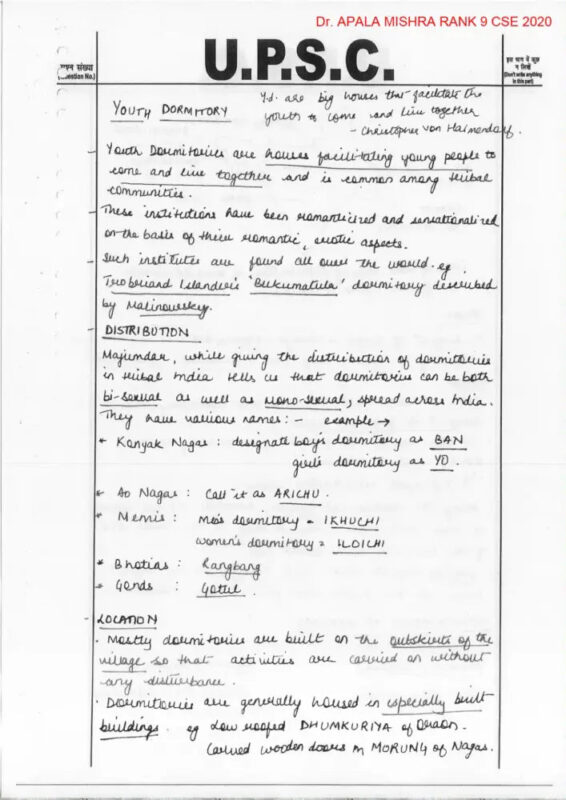 Dr. APALA MISHRA RANK 9 CSE 2020
U.P.S.C.
प्रश्न संख्या
(Question No.)
इस भाग में कुछ
न लिखें
(Don't write anything
in this part)
YOUTH DORMITORY
Y.d. are big houses that facilitate the
youth to come and live together
- Christopher von Haimendorf.
- Youth Dormitories are houses facilitating young people to
come and live together and is common among tribal
communities.
- These institutions have been romanticized and sensationalized
on the basis of their romantic, exotic aspects.
- Such institutes are found all over the world. eg.
Trobriand Islander's 'Bukumatula' dormitory described
by Malinowsky.
- DISTRIBUTION
Majumdar, while giving the distribution of dormitories
in tribal India tells us that dormitories can be both
bi-sexual as well as mono-sexual, spread across India.
They have various names:- example →
* Konyak Nagas : designate boy's dormitory as BAN
girl's dormitory as YO.
* Ao Nagas : Call it as ARICHU.
* Memis : Men's dormitory = IKHUCHI
women's dormitory = ILOICHI
* Bhotias : Rangbang
* Gonds : Gotul.
- LOCATION
• Mostly dormitories are built on the outskirts of the
village so that activities are carried on without
any disturbance.
• Dormitories are generally housed in especially built
buildings. eg Low roofed DHUMKURIYA of Oraon.
Carved wooden doors in MORUNG of Nagas.